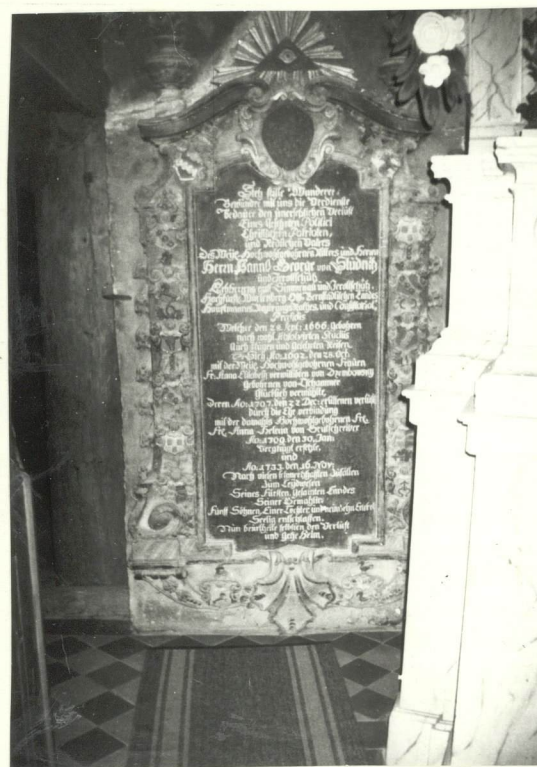 Steh stille Wanderer.
Bewundre mit uns die Verdienste
Bedaure den unersetzlichen Verlust
Eines Gelehrten Politici
Christlichen Patrioten,
und Redlichen Vaters
Des Weil. Hochwohlgebohrnen Ritters und Herrn
Herrn Hannß George von Studnitz
und Jeroltschütz
Erbherrn auf und Jeroltschütz.
Hochfürstl. Würtenberg Olß. Bernstädtischen Landes
Hauptmanns, Regierungs Rathes, und Consistorial
Præsidis
Welcher den 28. 1666. Gebohren
nach wohl Studiis
Nach klugen und Reisen.
Ao. 1692. den 28. Oct.
mit der Weil. Hochwohlgebohrnen Frauen
Fr. Anna Elisabeth verwittibten von
Gebohrnen von
Glücklich vermählte,
Deren Ao: 1707. den 22 Dec: erlittenen verlust
durch die Ehe verbindung
mit der damahls Hochwohlgebohrnen Frl.
Frl. Anna Helena von
Ao: 1709 den 30. Jan:
Vergnügt ersetzte,
und
Ao: 1733. den 16. Nov:
Nach vielen schmerzhafften Zufällen
zum Leydwesen
Seines Fürsten, Gesamten Landes
Seiner Gemahlin
Fünff Söhnen, Einer Tochter und
Seelig entschlaffen.
Nun beurtheile selbsten den Verlust
und Gehe Heim.